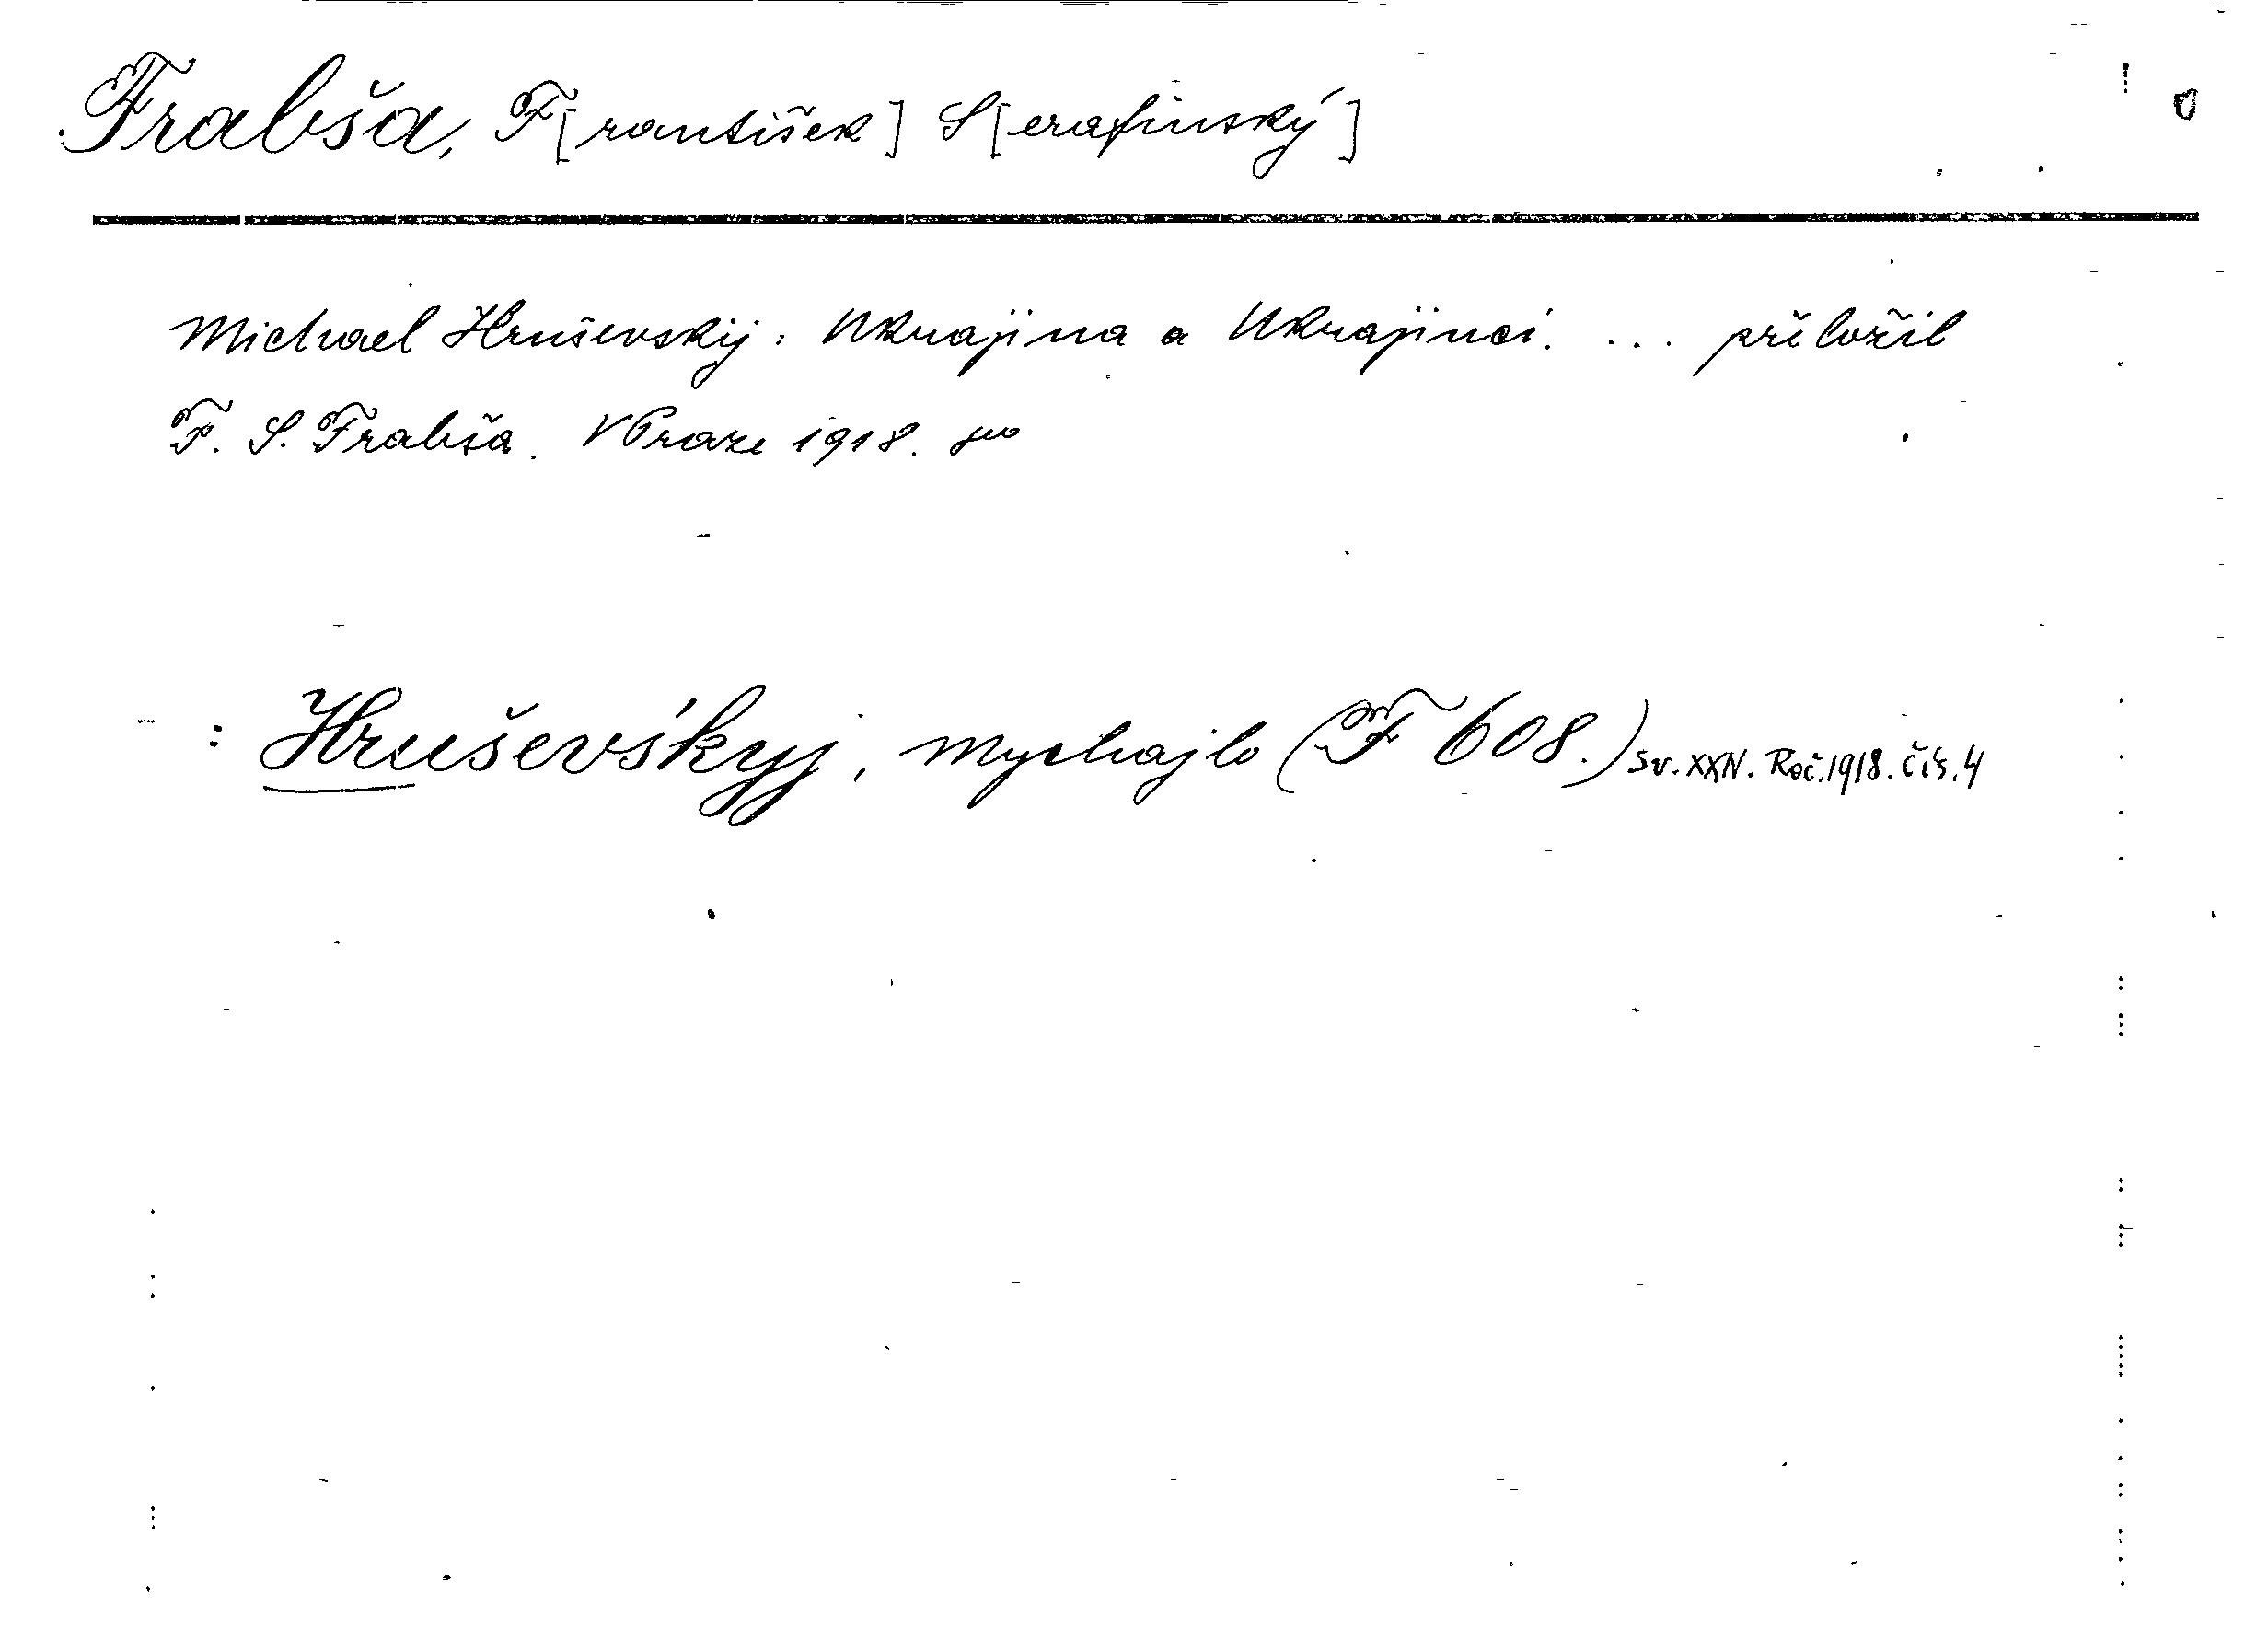 Frabša, F[rantišek] S[erafinský]
Michael Hruševskij: Ukrajina a Ukrajinci. ... přeložil
F. S. Frabša. V Praze 1918. 8vo
: Hruševśkyj, Mychajlo (F 608.) Sv. XXIV. Roč. 1918. čís. 4